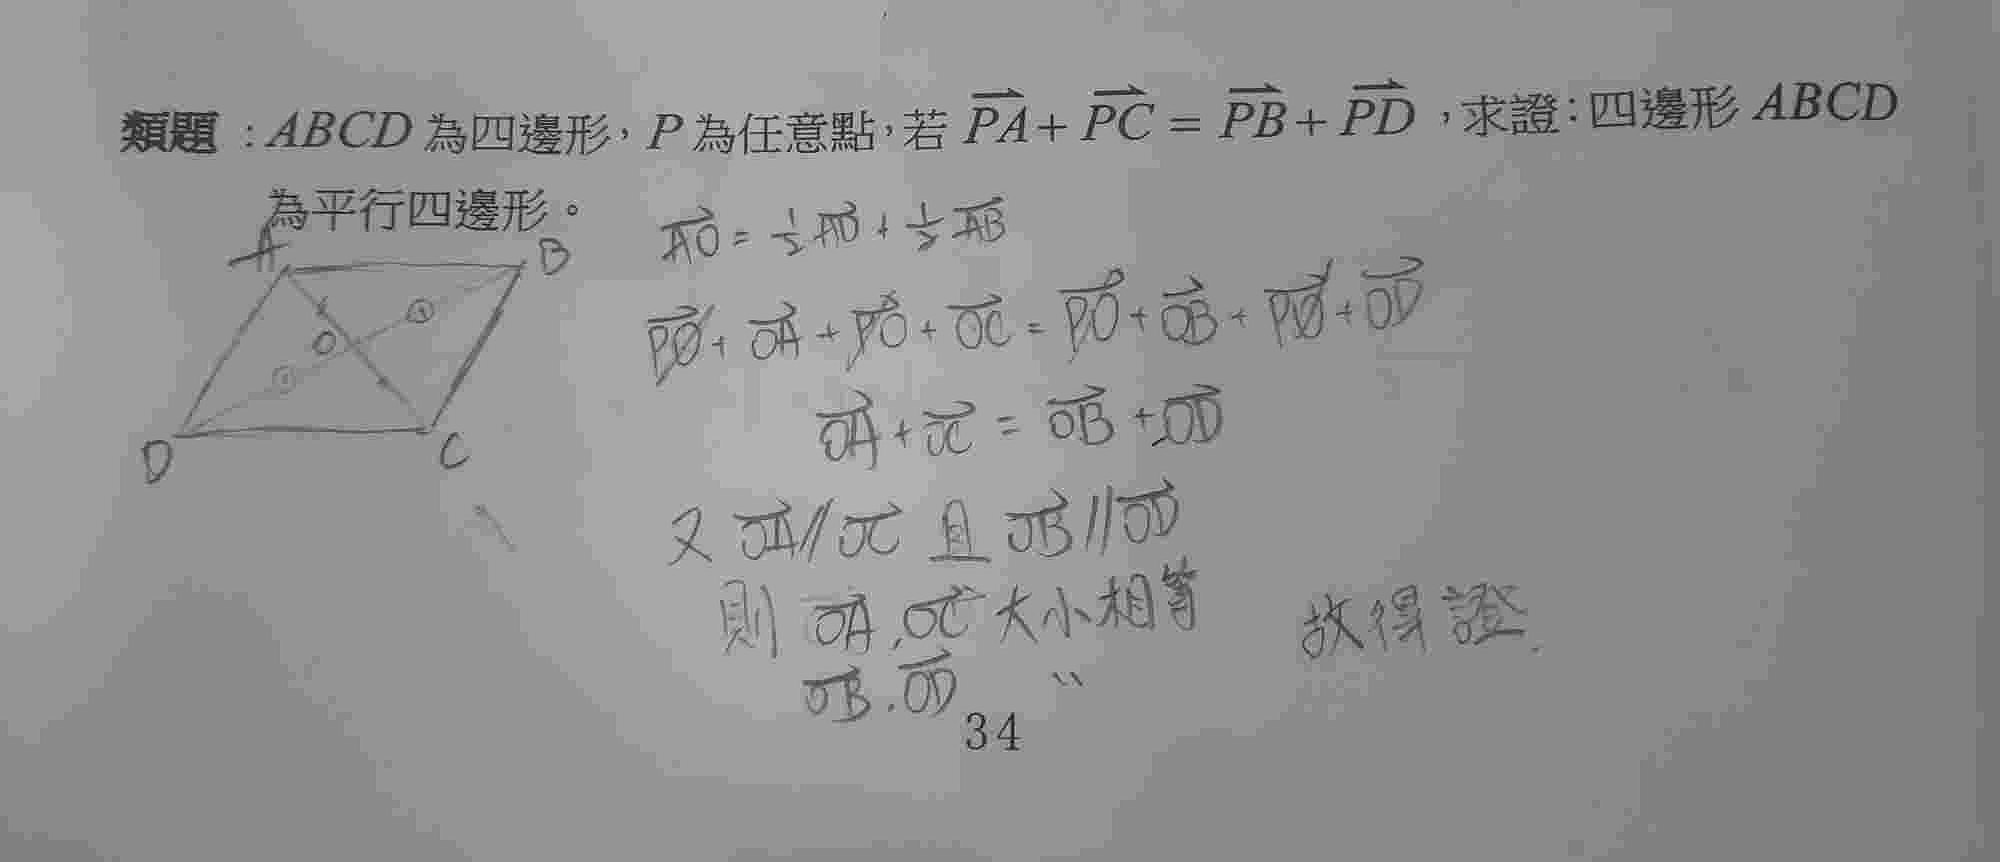 類題：ABCD 為四邊形，P 為任意點，若 \overrightarrow{PA} + \overrightarrow{PC} = \overrightarrow{PB} + \overrightarrow{PD}，求證：四邊形 ABCD
為平行四邊形。
A B
O
D C
\overrightarrow{AO} = \frac{1}{2}\overrightarrow{AD} + \frac{1}{2}\overrightarrow{AB}
\overrightarrow{PO} + \overrightarrow{OA} + \overrightarrow{PO} + \overrightarrow{OC} = \overrightarrow{PO} + \overrightarrow{OB} + \overrightarrow{PO} + \overrightarrow{OD}
\overrightarrow{OA} + \overrightarrow{OC} = \overrightarrow{OB} + \overrightarrow{OD}
又 \overrightarrow{OA} // \overrightarrow{OC} 且 \overrightarrow{OB} // \overrightarrow{OD}
則 \overrightarrow{OA}, \overrightarrow{OC} 大小相等 故得證.
\overrightarrow{OB}. \overrightarrow{OD} 〃
34